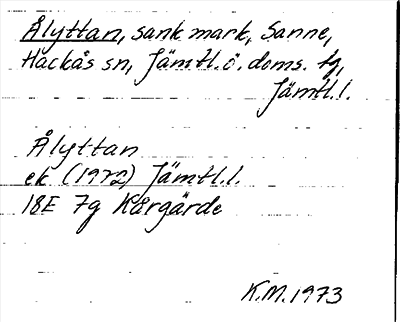 Ålyttan, sank mark, Sanne,
Hackås sn, Jämtl.ö. doms. tg,
Jämtl.l.
Ålyttan
ek (1972) Jämtl.l.
18E 7g Kårgärde
K.M.1973